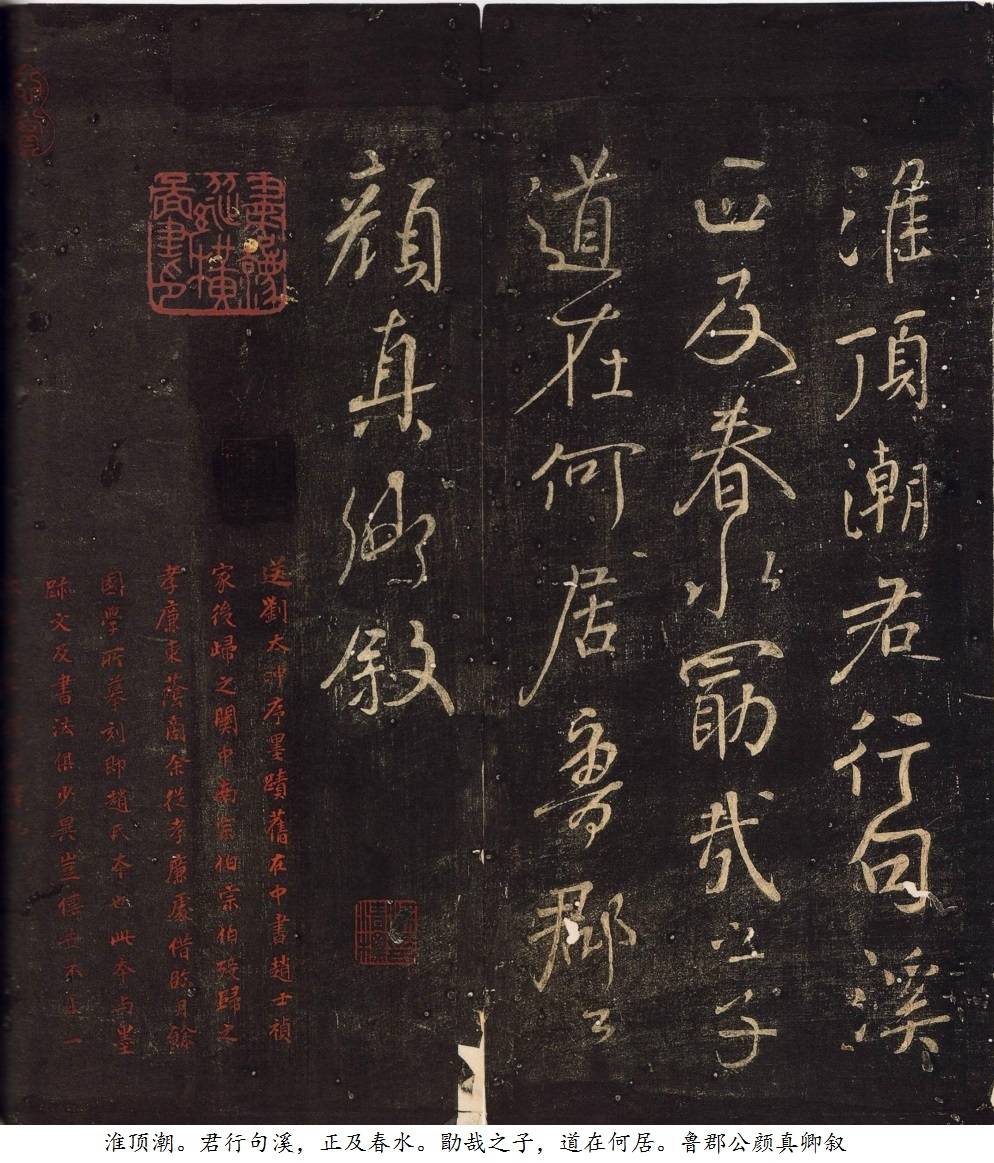 淮顶潮君行句溪
正及春水勖哉之子
道在何居魯郡公
顏真卿叙
送劉太冲序墨蹟舊在中書趙士禎
家後歸之關中南宗伯宗伯歿歸之
孝廉東蔭商余從孝廉處借臨月餘
國學所摹刻即趙氏本也此本与墨
跡文及書法俱少異豈偃世不止一
淮顶潮。君行句溪，正及春水。勖哉之子，道在何居。鲁郡公颜真卿叙